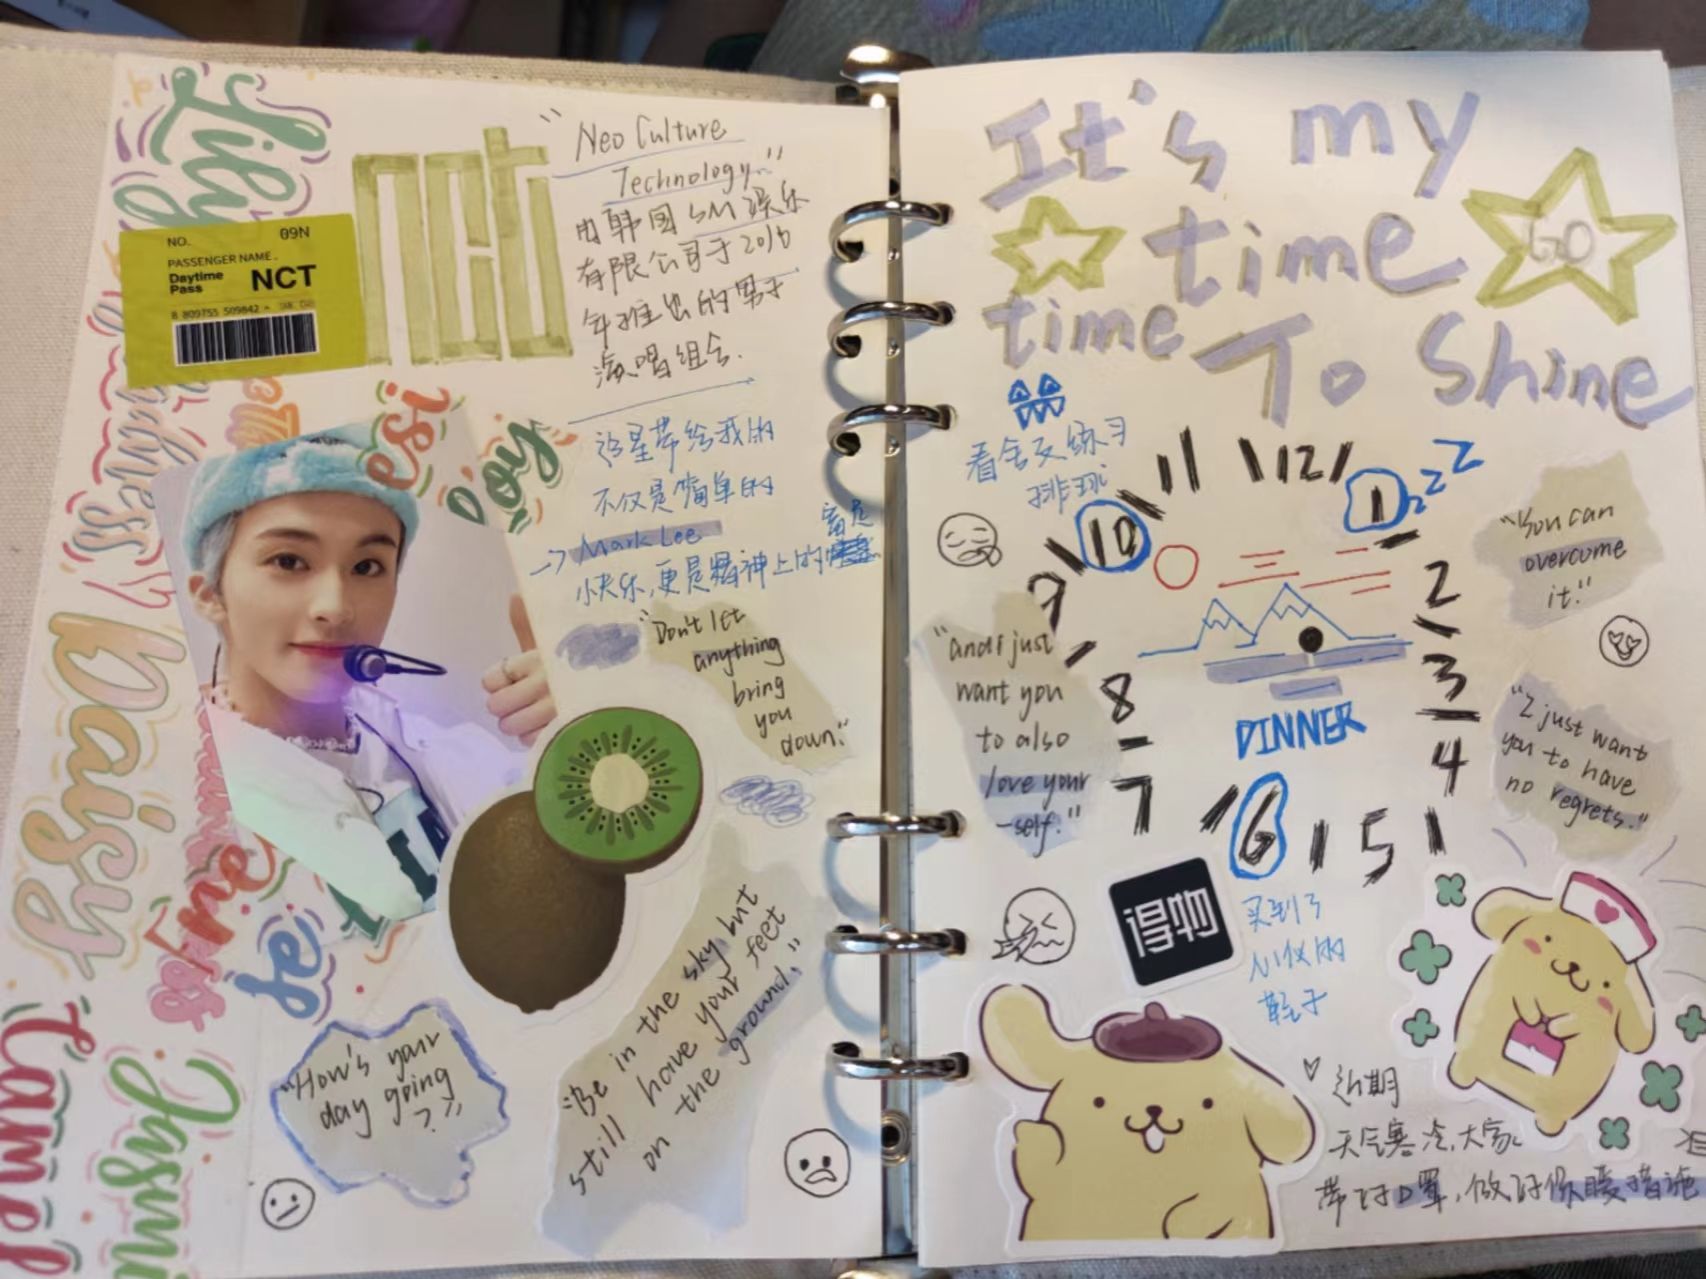 Lily
NO. 09N
PASSENGER NAME.
Daytime
Pass
NCT
nct
"Neo Culture
Technology"
由韩国SM娱乐
有限公司于2016
年推出的男子
演唱组合.
追星带给我的
不仅是简单的
→Mark Lee
小快乐,更是精神上的
富足
"Don't let
anything
bring
you
down."
Daisy
"Be in the sky but
still have your feet
on the ground."
"How's your
day going
?"
It's my
time
time To Shine
GO
看舍友练习
排球
11 12 1 zzz
10
2
9
3
8
4
7
6
5
DINNER
"You can
overcome
it."
"and I just
want you
to also
love your
-self."
"I just want
you to have
no regrets."
得物
买到了
心仪的
鞋子
♡近期
天气寒冷,大家
带好口罩,做好保暖措施